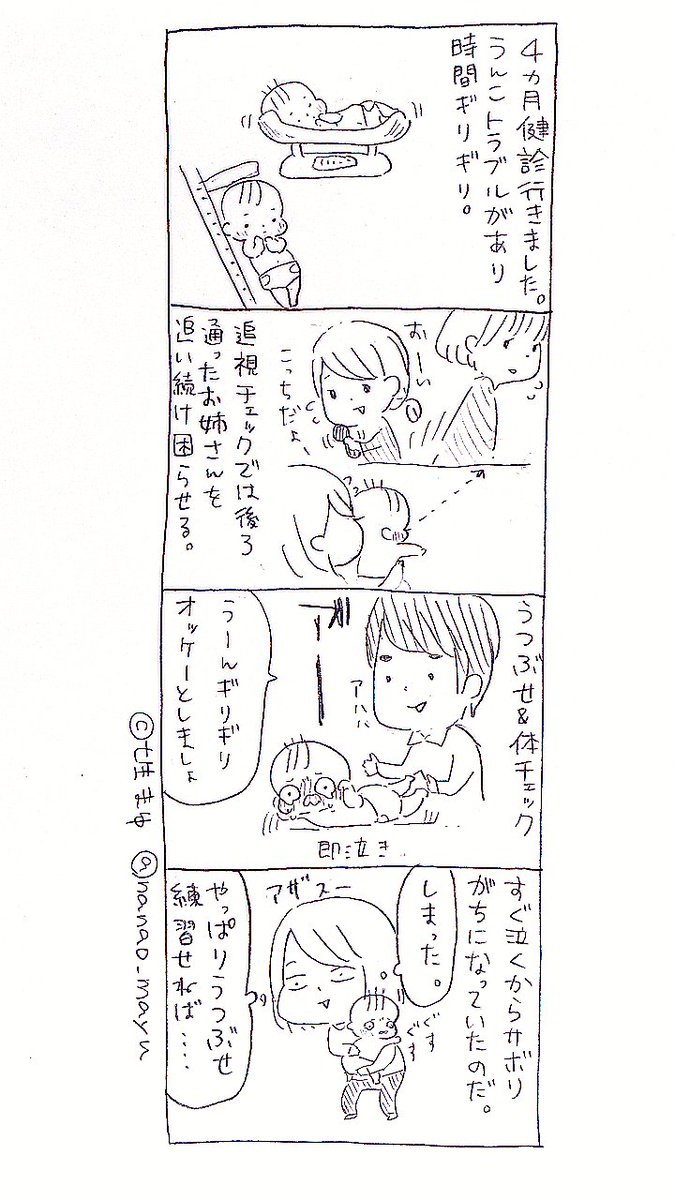 4ヵ月健診行きました。
うんこトラブルがあり
時間ギリギリ。
おーい
こっちだよ
追視チェックでは後ろ
通ったお姉さんを
追い続け困らせる。
うつぶせ&体チェック
アハハ
うーんギリギリ
オッケーとしましょ
即泣き
すぐ泣くからサボり
がちになっていたのだ。
しまった。
アザスー
ぐす
ぐす
やっぱりうつぶせ
練習せねば....
©七生まゆ @nanao_mayu